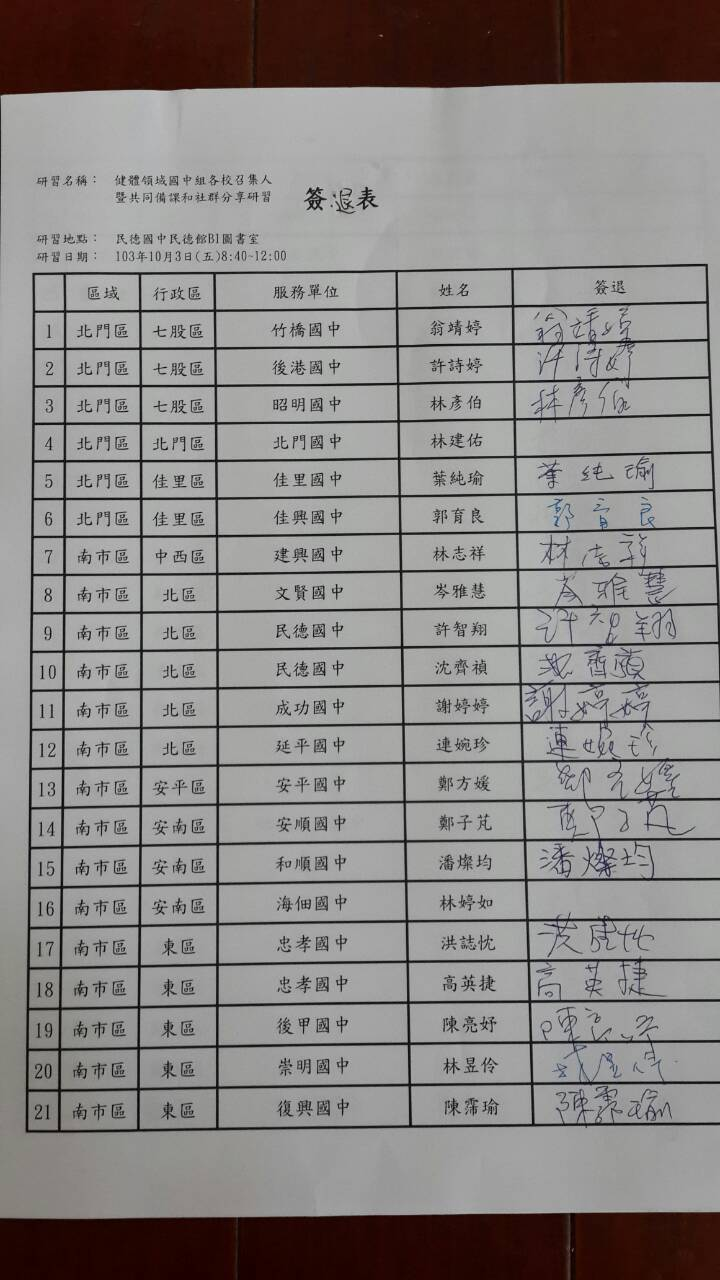 研習名稱： 健體領域國中組各校召集人
暨共同備課和社群分享研習
簽退表
研習地點： 民德國中民德館B1圖書室
研習日期： 103年10月3日(五)8:40~12:00
區域 行政區 服務單位 姓名 簽退
1 北門區 七股區 竹橋國中 翁靖婷 翁靖婷
2 北門區 七股區 後港國中 許詩婷 許詩婷
3 北門區 七股區 昭明國中 林彥伯 林彥伯
4 北門區 北門區 北門國中 林建佑
5 北門區 佳里區 佳里國中 葉純瑜 葉純瑜
6 北門區 佳里區 佳興國中 郭育良 郭育良
7 南市區 中西區 建興國中 林志祥 林志祥
8 南市區 北區 文賢國中 岑雅慧 岑雅慧
9 南市區 北區 民德國中 許智翔 許智翔
10 南市區 北區 民德國中 沈齊禎 沈齊禎
11 南市區 北區 成功國中 謝婷婷 謝婷婷
12 南市區 北區 延平國中 連婉珍 連婉珍
13 南市區 安平區 安平國中 鄭方媛 鄭方媛
14 南市區 安南區 安順國中 鄭子芃 鄭子芃
15 南市區 安南區 和順國中 潘燦均 潘燦均
16 南市區 安南區 海佃國中 林婷如
17 南市區 東區 忠孝國中 洪誌忱
18 南市區 東區 忠孝國中 高英捷 高英捷
19 南市區 東區 後甲國中 陳亮妤
20 南市區 東區 崇明國中 林昱伶
21 南市區 東區 復興國中 陳霈瑜 陳霈瑜